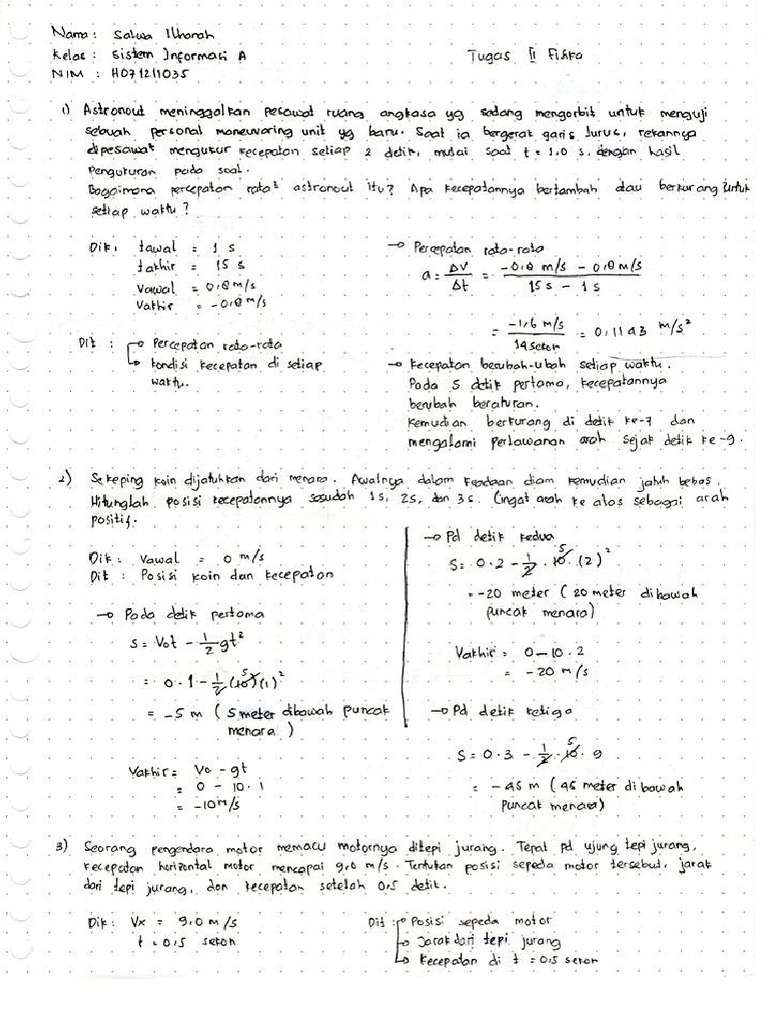 Nama : Salwa Ilharah
Kelas : Sistem Informasi A
Tugas II Fisika
NIM : H071211035
1) Astronout meninggalkan pesawat ruang angkasa yg sedang mengorbit untuk menguji
sebuah personal maneuvering unit yg baru. Saat ia bergerak garis lurus, rekannya
dipesawat mengukur kecepatan setiap 2 detik, mulai saat t = 1,0 s, dengan hasil
Pengukuran pada soal.
Bagaimana percepatan rata² astronout itu? Apa kecepatannya bertambah atau berkurang untuk
setiap waktu?
Dik : tawal = 1 s
takhir = 15 s
Vawal = 0,8 m/s
Vakhir = -0,8 m/s
Dit : → Percepatan rata-rata
→ kondisi kecepatan di setiap
waktu.
→ Percepatan rata-rata
a = ΔV/Δt = -0,8 m/s - 0,8 m/s / 15 s - 1 s
= -1,6 m/s / 14 sekon = 0,1143 m/s²
→ Kecepatan berubah-ubah setiap waktu.
Pada 5 detik pertama, kecepatannya
berubah beraturan.
Kemudian berkurang di detik ke-7 dan
mengalami perlawanan arah sejak detik ke-9.
2) Sekeping koin dijatuhkan dari menara. Awalnya dalam keadaan diam kemudian jatuh bebas.
Hitunglah posisi kecepatannya sesudah 1s, 2s, dan 3s. Cingat arah ke atas sebagai arah
positif.
Dik : Vawal = 0 m/s
Dit : Posisi koin dan kecepatan
→ Pada detik pertama
S = Vot - 1/2 gt²
= 0.1 - 1/2 (10) 5 (1)²
= -5 m ( 5 meter dibawah puncak
menara )
Vakhir = Vo - gt
= 0 - 10 . 1
= -10 m/s
→ Pd detik kedua
S = 0.2 - 1/2 . 10 5 . (2)²
= -20 meter ( 20 meter dibawah
puncak menara)
Vakhir = 0 - 10 . 2
= -20 m/s
→ Pd detik ketiga
S = 0.3 - 1/2 . 10 5 . 9
= -45 m ( 45 meter dibawah
puncak menara)
3) Seorang pengendara motor memacu motornya ditepi jurang. Tepat pd ujung tepi jurang,
kecepatan horizontal motor mencapai 9,0 m/s. Tentukan posisi sepeda motor tersebut, jarak
dari tepi jurang, dan kecepatan setelah 0,5 detik.
Dik : Vx = 9,0 m/s
t = 0,5 sekon
Dit : → Posisi sepeda motor
→ Jarak dari tepi jurang
→ Kecepatan di t = 0,5 sekon